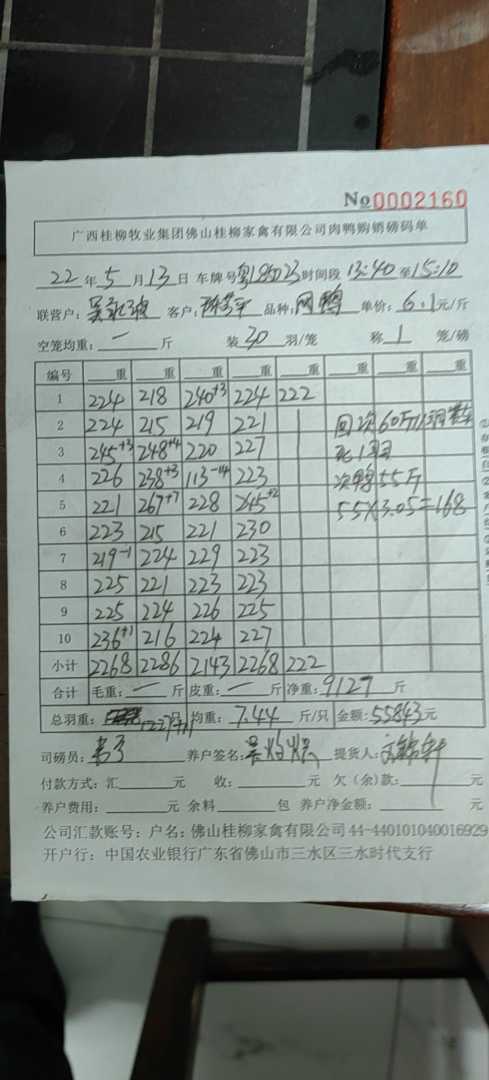 No 0002160
广西桂柳牧业集团佛山桂柳家禽有限公司肉鸭购销磅码单
22年5月13日 车牌号 时间段13:40至15:10
联营户： 客户： 品种： 鸭 单价：6.1元/斤
空笼均重：一斤 装30羽/笼 称1笼/磅
编号 重 重 重 重 重 重 重 重
1 224 218 240+3 224 222
2 224 215 219 221 回次60斤
3 245+3 248+4 220 227 死1羽
4 226 238+3 113-14 223 次鸭55斤
5 221 267+7 228 245+2 55×3.05=168
6 223 215 221 230
7 219-1 224 229 223
8 225 221 223 223
9 225 224 226 225
10 236+1 216 224 227
小计 2268 2286 2143 2268 222
合计 毛重：一斤 皮重：一斤 净重：9127斤
总羽重： 只 均重：7.44斤/只 金额：55843元
司磅员： 养户签名： 提货人：
付款方式：汇 元 收： 元 欠（余）款： 元
养户费用： 元 余料 包 养户净金额： 元
公司汇款账号：户名：佛山桂柳家禽有限公司44-440101040016929
开户行：中国农业银行广东省佛山市三水区三水时代支行